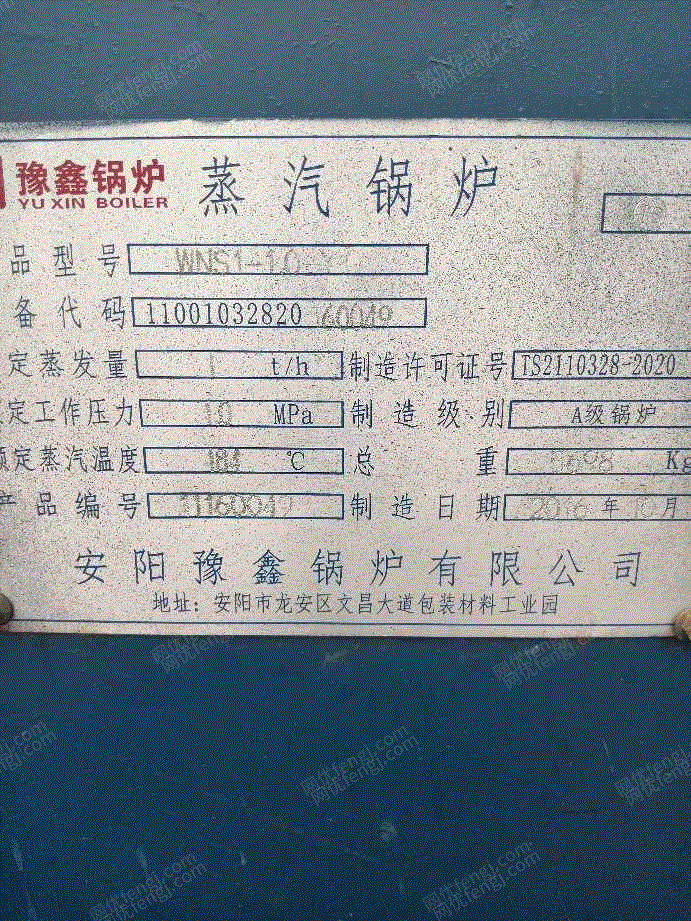 豫鑫锅炉 蒸汽锅炉
YU XIN BOILER
品型号 WNS1-1.0
备代码 11001032820 60049
定蒸发量 1 t/h 制造许可证号 TS2110328-2020
定工作压力 1.0 MPa 制造级别 A级锅炉
额定蒸汽温度 184 ℃ 总重 5698 Kg
产品编号 1116004 制造日期 2016 年 10 月
安阳豫鑫锅炉有限公司
地址：安阳市龙安区文昌大道包装材料工业园
网优fengj.com